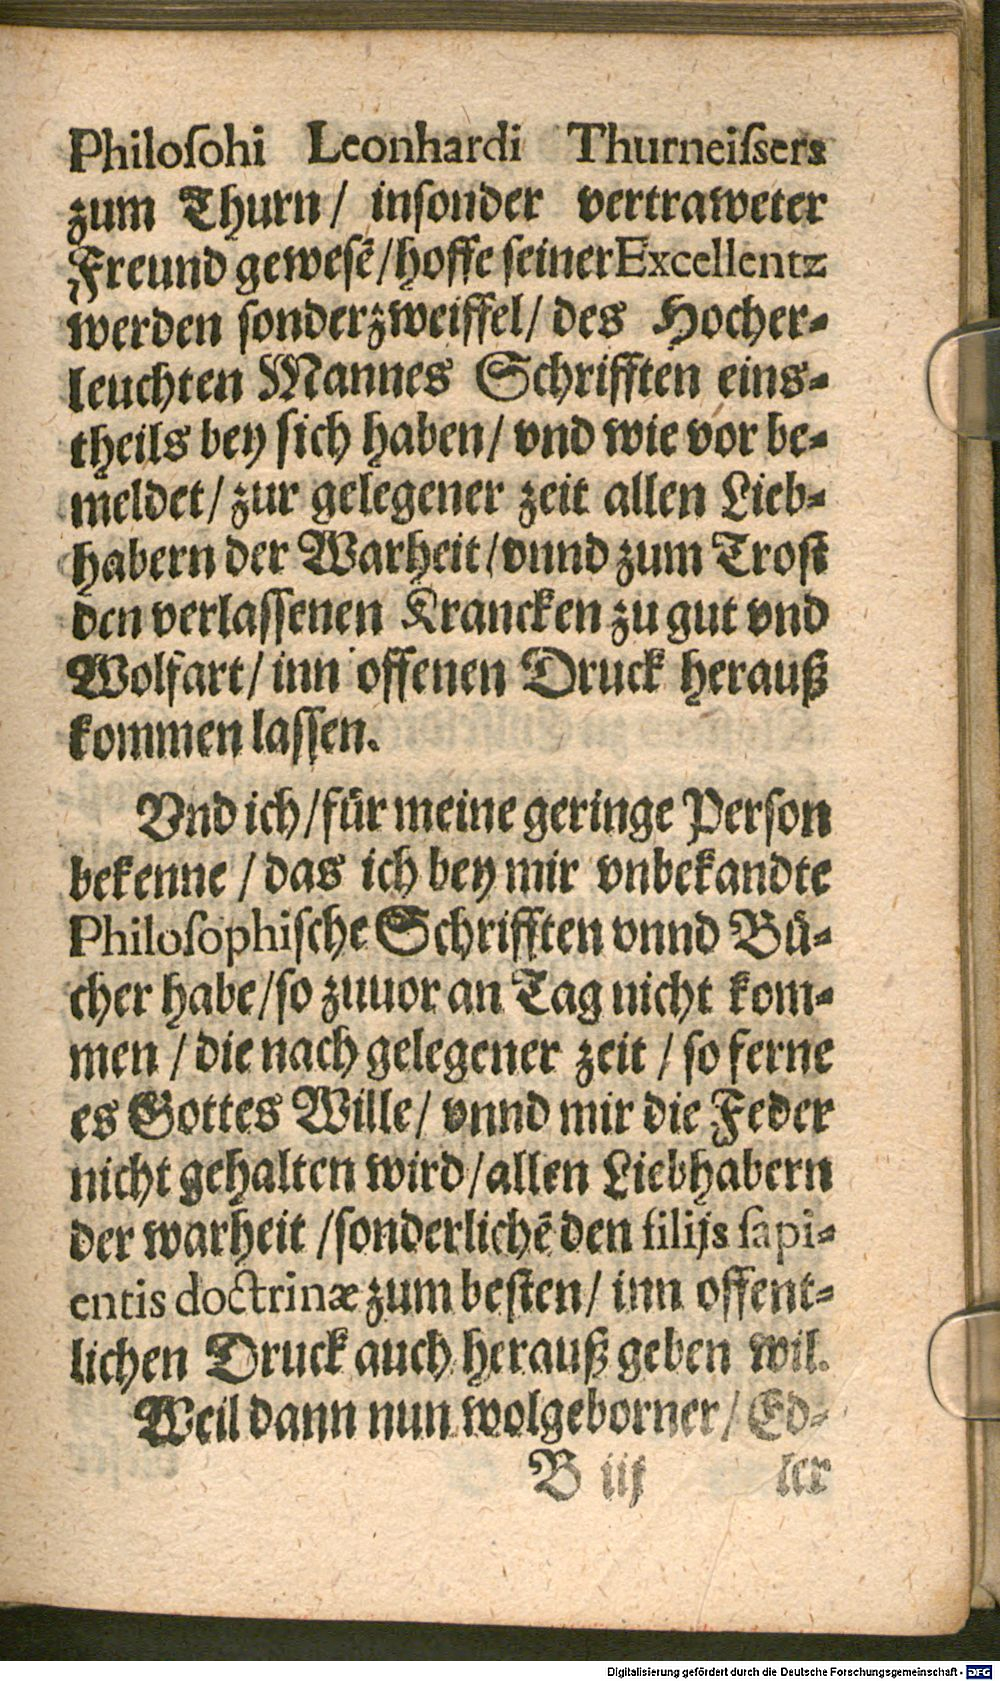 Philoſohi Leonhardi Thurneiſsers
zum Thurn/ inſonder vertraweter
Freund geweſẽ/hoffe ſeiner Excellentz
werden ſonderzweiffel/ des Hocher⸗
leuchten Mannes Schrifften eins⸗
theils bey ſich haben/ vnd wie vor be⸗
meldet/ zur gelegener zeit allen Lieb⸗
habern der Warheit/vnnd zum Troſt
den verlaſſenen Krancken zu gut vnd
Wolfart/ inn offenen Druck herauß
kommen laſſen.
Vnd ich/für meine geringe Perſon
bekenne / das ich bey mir vnbekandte
Philoſophiſche Schrifften vnnd Bü⸗
cher habe/ſo zuuor an Tag nicht kom⸗
men / die nach gelegener zeit / ſo ferne
es Gottes Wille/ vnnd mir die Feder
nicht gehalten wird/allen Liebhabern
der warheit /ſonderlichẽ den filijs ſapi⸗
entis doctrinæ zum beſten/ inn offent⸗
lichen Druck auch herauß geben wil.
Weil dann nun wolgeborner/ Ed⸗
B iij ler
Digitalisierung gefördert durch die Deutsche Forschungsgemeinschaft - DFG